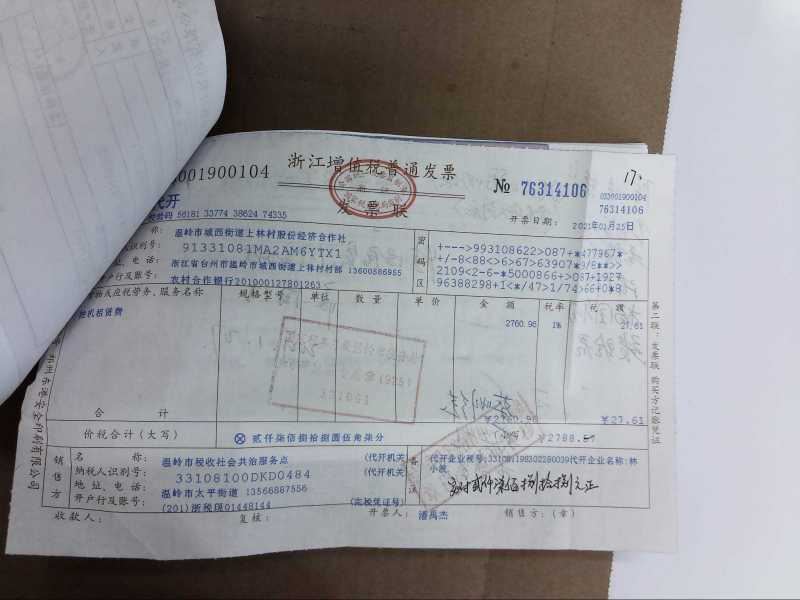 浙江增值税普通发票
001900104
发票联
№ 76314106
033001900104
76314106
17.
代开
校验码 56181 33774 38624 74335
开票日期: 2021年01月25日
名称: 温岭市城西街道上林村股份经济合作社
识别号: 91331081MA2AM6YTX1
电话: 浙江省台州市温岭市城西街道上林村村部 13600586955
开户行及账号: 农村合作银行201000127801263
密码区
+--->993108622>087+*477967*
+/-8<88<>6>67>63907*9/8**>>
2109<2-6-*5000866+>087+1927
96388298+1<*/47>1/74>66+0*8
货物或应税劳务、服务名称 规格型号 单位 数量 单价 金额 税率 税额
挖机租赁费 2760.96 1% 27.61
合计 ¥2760.96 ¥27.61
价税合计(大写) 贰仟柒佰捌拾捌圆伍角柒分 (小写) ¥2788.57
第二联:发票联 购买方记账凭证
销售方
名称: 温岭市税收社会共治服务点 (代开机关)
纳税人识别号: 33108100DKD0484 (代开机关
地址、电话: 温岭市太平街道 13566887556
开户行及账号: (201)浙税现01448144 (完税凭证号)
备注
代开企业税号:331081198302280039代开企业名称:林
小波
实付贰仟柒佰捌拾捌元正
收款人: 复核: 开票人: 潘禹杰 销售方:(章)